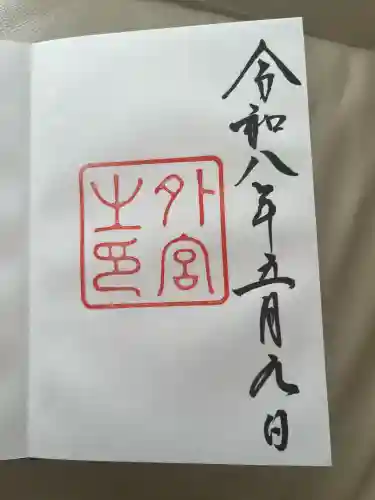 令和八年五月九日
外宮
之印